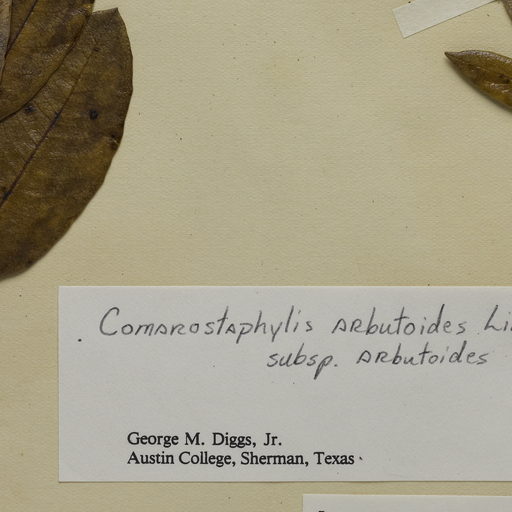 Comarostaphylis arbutoides Li
subsp. arbutoides
George M. Diggs, Jr.
Austin College, Sherman, Texas